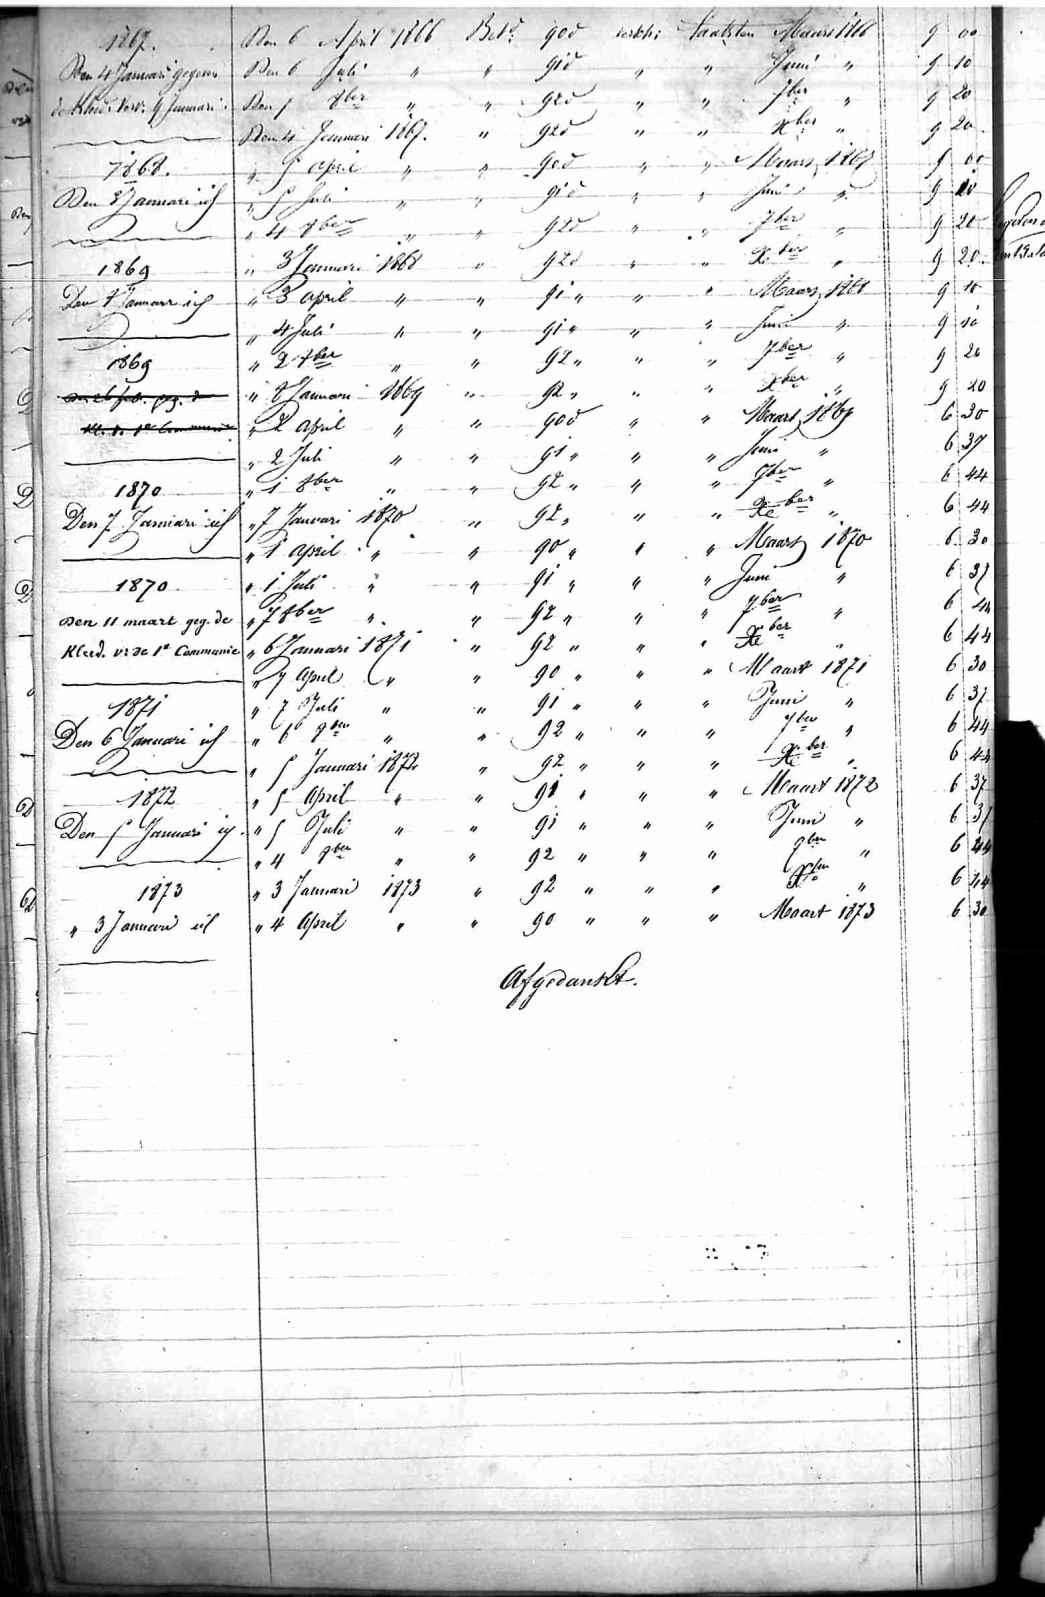 1867. Den 6 April 1866 Bet. 90d laatsten Maart 1866 9 00
Den 4 Januari gegeven Den 6 Juli " " 91d " " Juni " 9 10
9 Januari. Den 5 8ber " " 92d " " 7ber " 9 20
Den 4 Januari 1867. " 92d " " Xber " 9 20
1868. " 5 April " " 90d " " Maart 1867 9 00
Den 3 Januari " 5 Juli " " 91d " " Juni " 9 10
" 4 8ber " " 92d " " 7ber " 9 20
1869 " 3 Januari 1868 " 92d " " Xber " 9 20
Den 8 Januari " 3 April " " 91 " " " Maart 1868 9 10
" 4 Juli " " 91 " " " Juni " 9 10
1869 " 2 8ber " " 92 " " " 7ber " 9 20
" 8 Januari 1869 " 92 " " " Xber " 9 20
1e Communie " 2 April " " 90d " " Maart 1869 6 30
" 2 Juli " " 91 " " " Juni " 6 37
1870 " 1 8ber " " 92 " " " 7ber " 6 44
Den 7 Januari " 7 Januari 1870 " 92 " " " Xber " 6 44
" 1 April " " 90 " " " Maart 1870 6 30
1870 " 1 Juli " " 91 " " " Juni " 6 37
Den 11 maart geg. de " 7 8ber " " 92 " " " 7ber " 6 44
Kleed. vr de 1e Communie " 6 Januari 1871 " 92 " " " Xber " 6 44
" 7 April " " 90 " " " Maart 1871 6 30
1871 " 7 Juli " " 91 " " " Juni " 6 37
Den 6 Januari " 6 8ber " " 92 " " " 7ber " 6 44
" 5 Januari 1872 " 92 " " " Xber " 6 44
1872 " 5 April " " 91 " " " Maart 1872 6 37
Den 5 Januari " 5 Juli " " 91 " " " Juni " 6 37
" 4 8ber " " 92 " " " 7ber " 6 44
1873 " 3 Januari 1873 " 92 " " " Xber " 6 44
" 3 Januari " 4 April " " 90 " " " Maart 1873 6 30
Afgedankt.